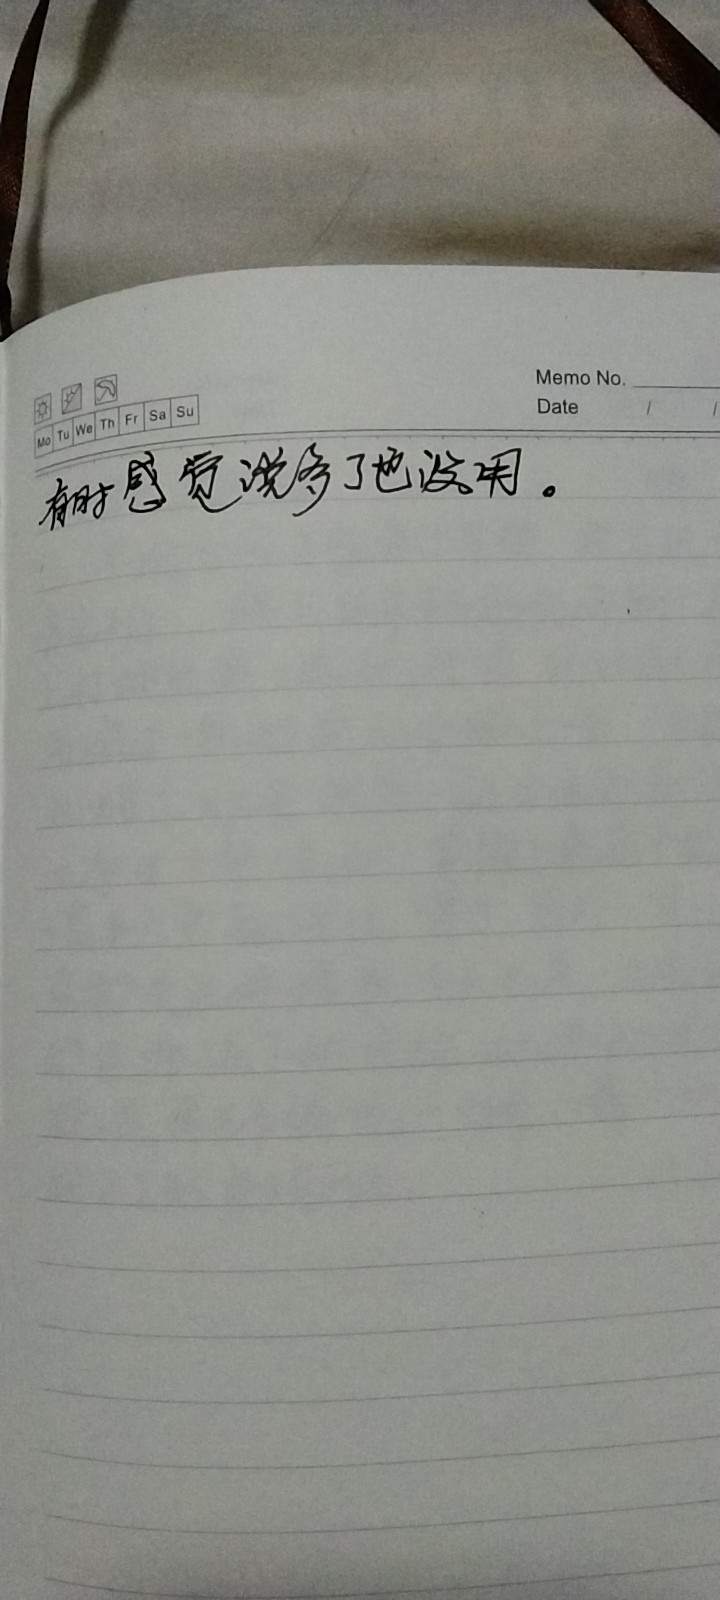 Memo No.
Mo Tu We Th Fr Sa Su
Date / /
有时感觉说多了也没用。